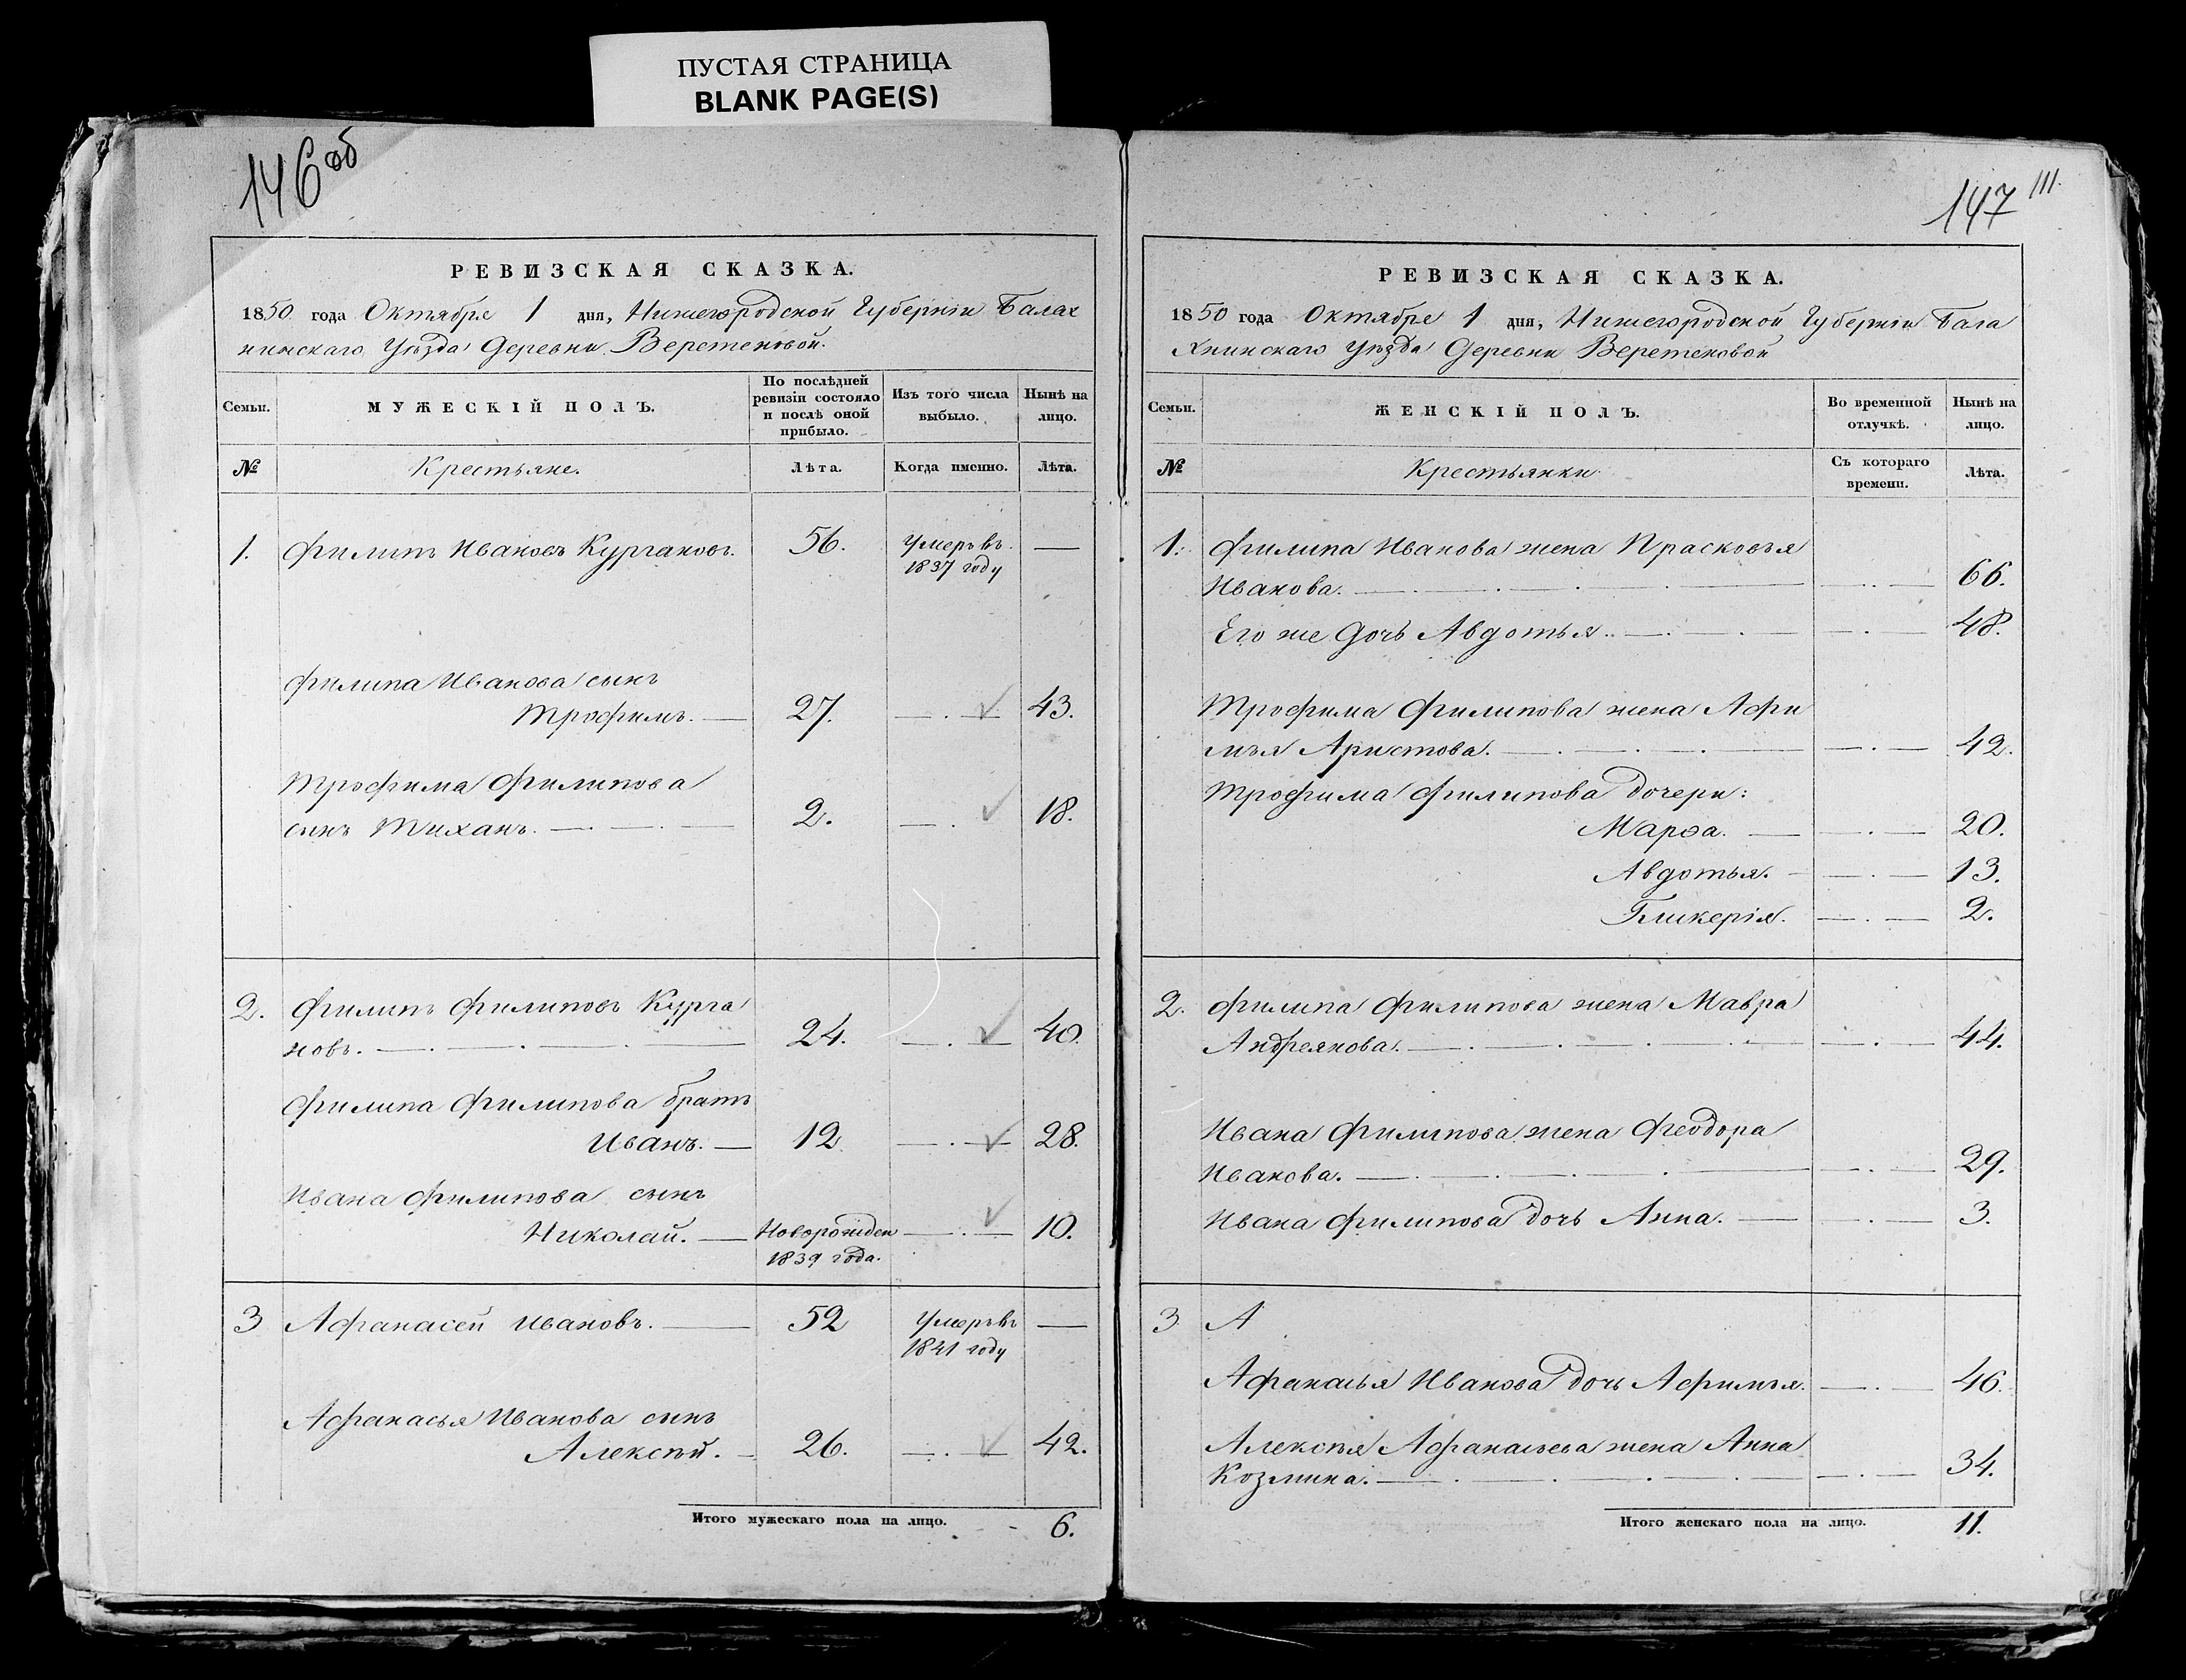 ПУСТАЯ СТРАНИЦА
BLANK PAGE(S)
146об
РЕВИЗСКАЯ СКАЗКА.
1850 года Октября 1 дня, Нижегородской Губерніи Балах
нинскаго Уѣзда Деревни Веретеновой.
Семьи.
МУЖЕСКІЙ ПОЛЪ.
По послѣдней
ревизіи состояло
и послѣ оной
прибыло.
Изъ того числа
выбыло.
Нынѣ на
лицо.
№ Крестьяне. Лѣта. Когда именно. Лѣта.
1. Филипъ Ивановъ Кургановъ. 56. Умеръ въ —
1837 году
Филипа Иванова сынъ
Трофимъ. — 27. — . — 43.
Трофима Филипова
сынъ Тиханъ. — . — . — 2. — . 18.
2. Филипъ Филиповъ Курга
новъ. — . — . — . — 24. — . — 40.
Филипа Филипова братъ
Иванъ. — 12. — . — 28.
Ивана Филипова сынъ
Николай. — Новорожден — . — 10.
1839 года.
3 Афанасей Ивановъ. — 52 Умеръ въ —
1841 году
Афанасья Иванова сынъ
Алексѣй. — 26. — . — 42.
Итого мужескаго пола на лицо. - 6.
147 111.
РЕВИЗСКАЯ СКАЗКА.
1850 года Октября 1 дня, Нижегородской Губерніи Бала
хнинскаго Уѣзда Деревни Веретеновой
Семьи.
ЖЕНСКІЙ ПОЛЪ.
Во временной
отлучкѣ.
Нынѣ на
лицо.
№ Крестьянки
Съ котораго
времени.
Лѣта.
1. Филипа Иванова жена Прасковья
Иванова. — . — . — . — — . . — 66.
Его же дочь Авдотья. . — . — . — — . — 48.
Трофима Филипова жена Афи
мья Аристова. — . — . — . — — . — 42.
Трофима Филипова дочери:
Марѳа. — — . — 20.
Авдотья. - — . — 13.
Гликерія. — . — 2.
2. Филипа Филипова жена Мавра
Андреянова. — . — . — . — . — — . — 44.
Ивана Филипова жена Феодора
Иванова. — . — . — . — . — — . — 29.
Ивана Филипова дочь Анна. — — . — 3.
3 А
Афанасья Иванова дочь Афимья. — . — 46.
Алексѣя Афанасьева жена Анна
Козмина. — . — . — . — . — — . — 34.
Итого женскаго пола на лицо. 11.